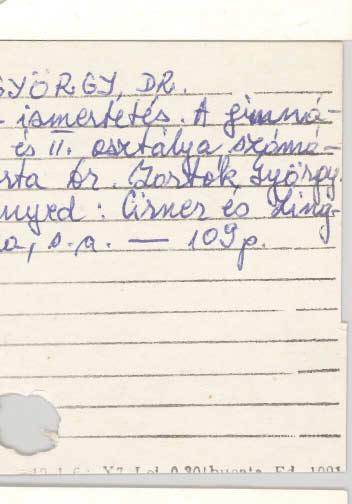 GYÖRGY, DR.
- ismertetés. A gimná-
és II. osztálya számá-
rta Dr. Bortok György
nyed : Cirner és Ling-
a, s.a. — 109 p.